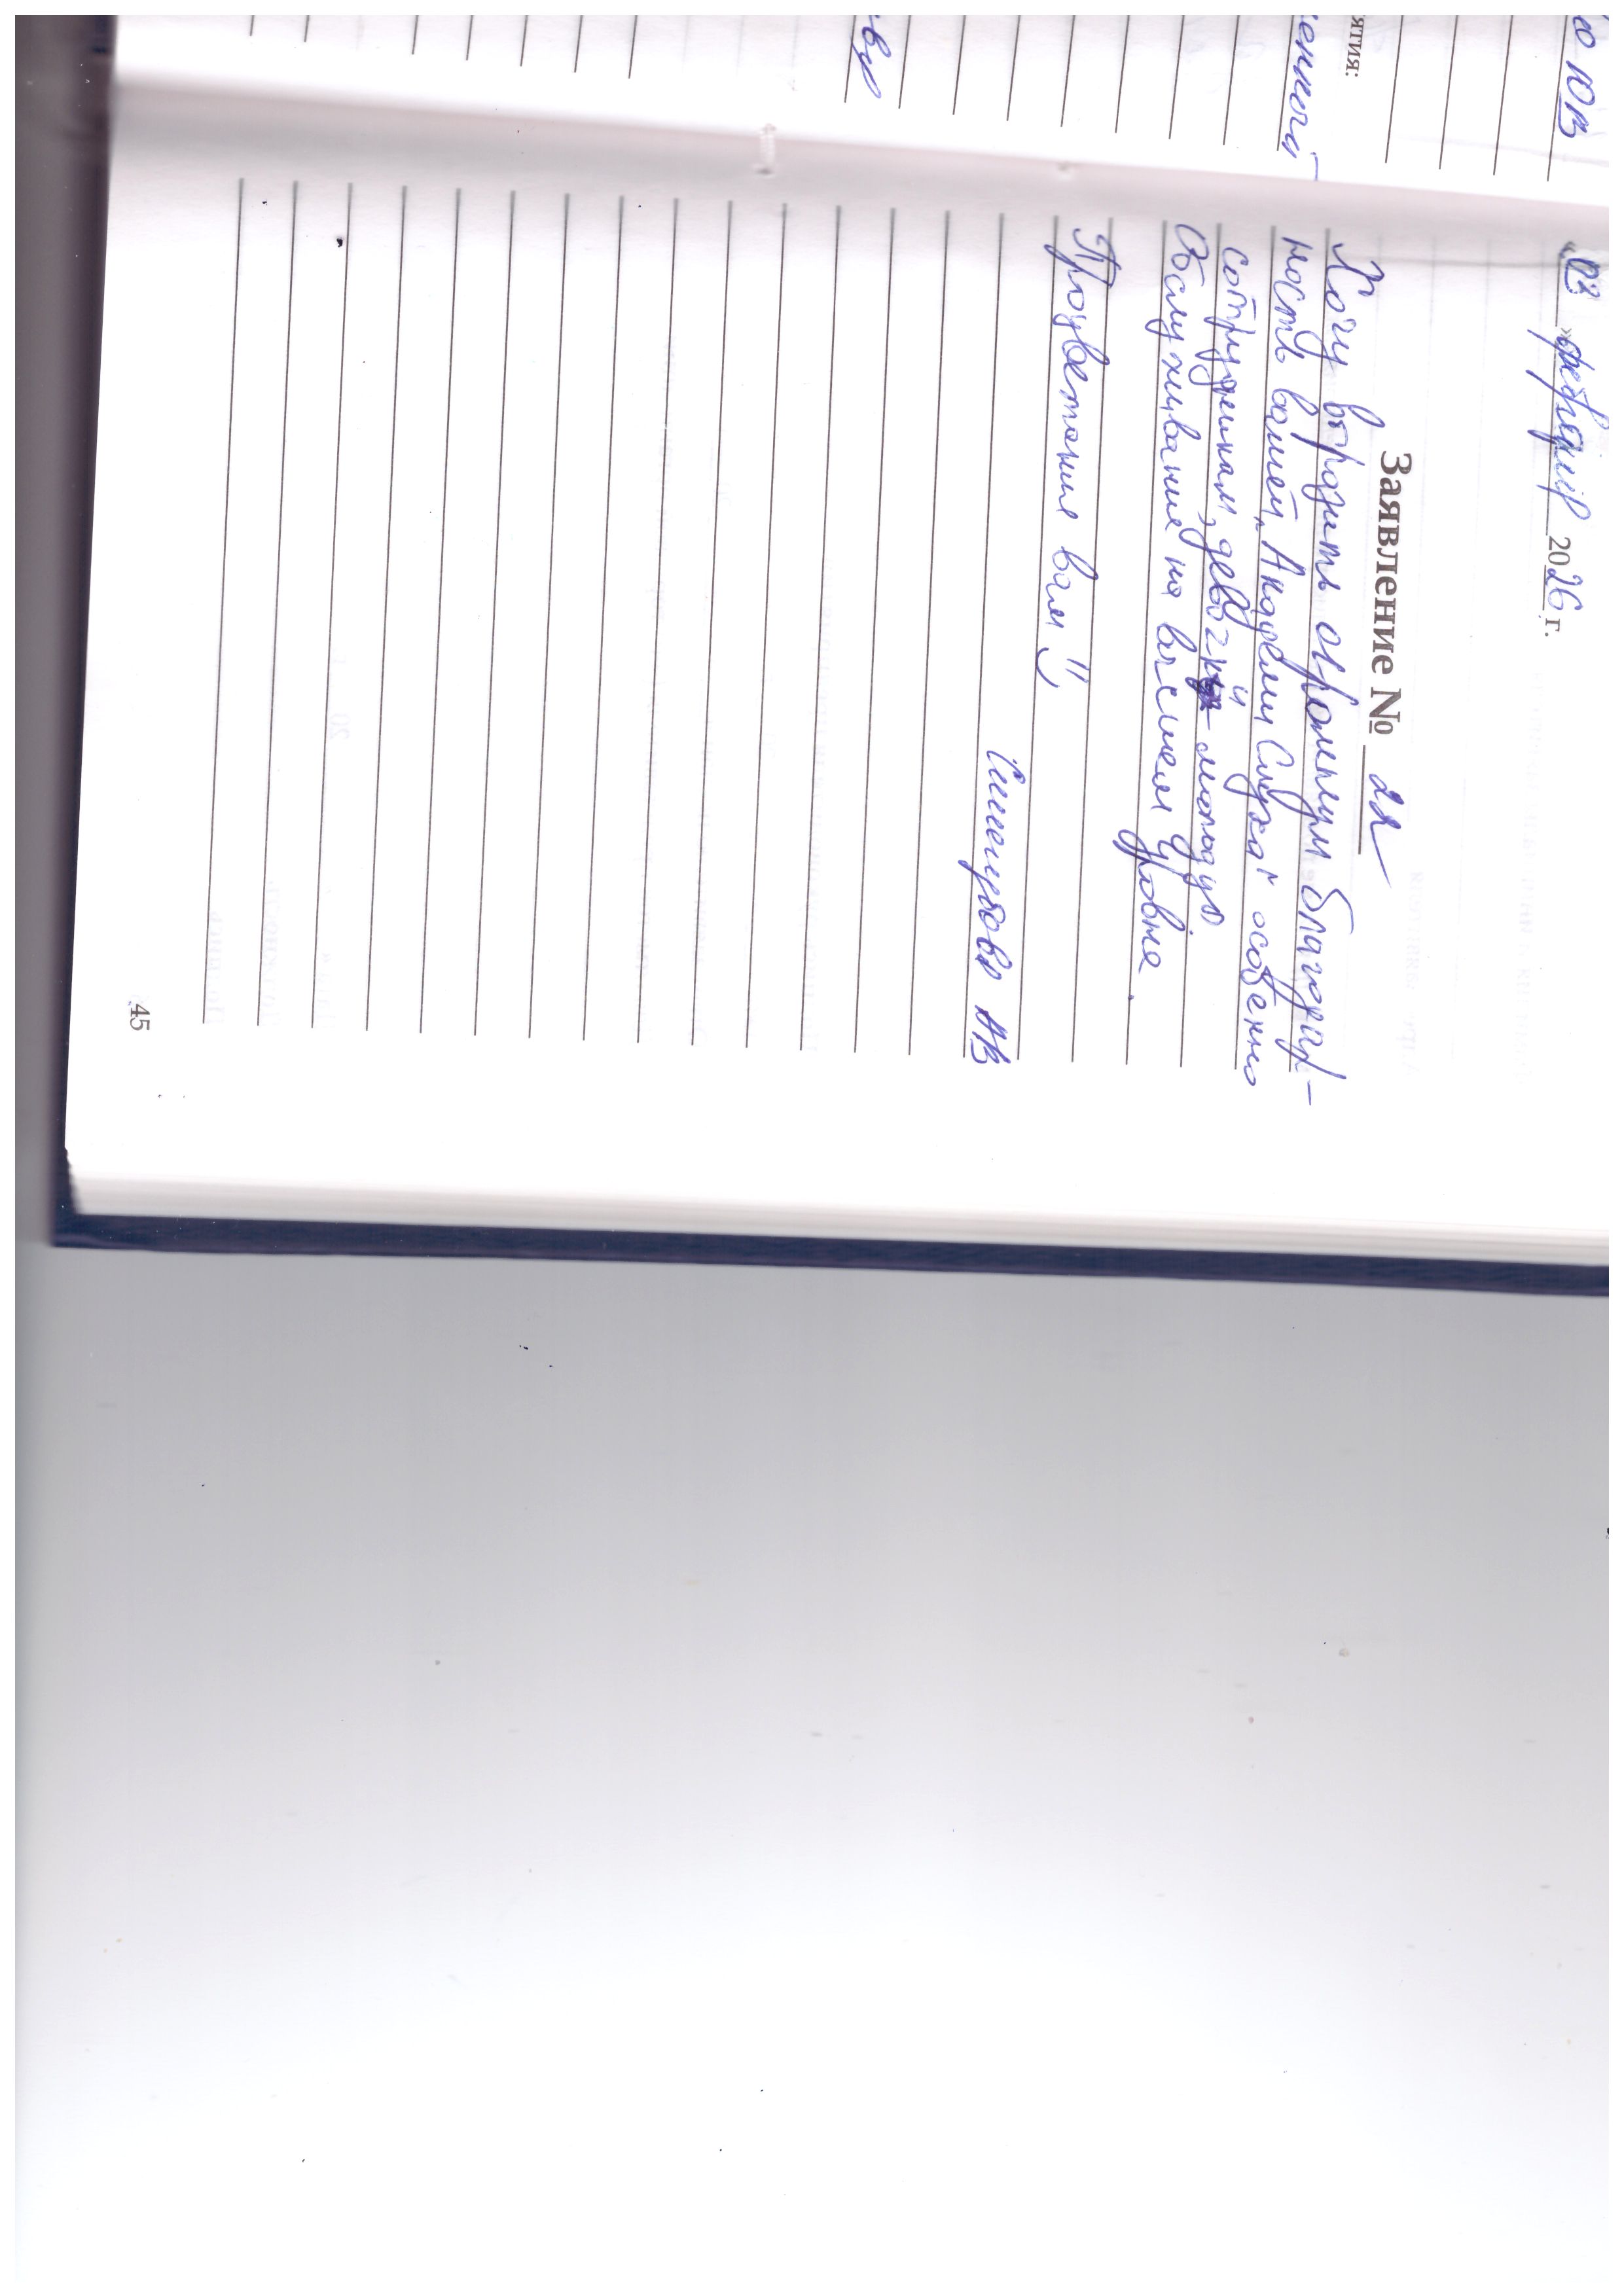 «03» февраля 2026 г.
Заявление № 22
Хочу выразить огромную благодар-
ность вашей "Академии Слуха" особенно
сотрудникам, девочки - молодцы
Обслуживание на высшем уровне.
Процветания вам!
АВ
45
ятия:
енной
ю ЮВ